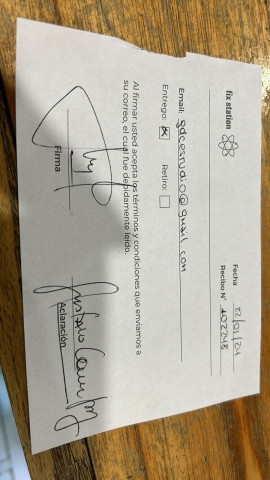 fix station
Fecha 22/01/24
Recibo N° 102248
Email: gdcestudio@gmail.com
Entrega: x Retiro:
Al firmar usted acepta los términos y condiciones que enviamos a
su correo, el cual fue debidamente leído.
Firma
Gustavo
Aclaración